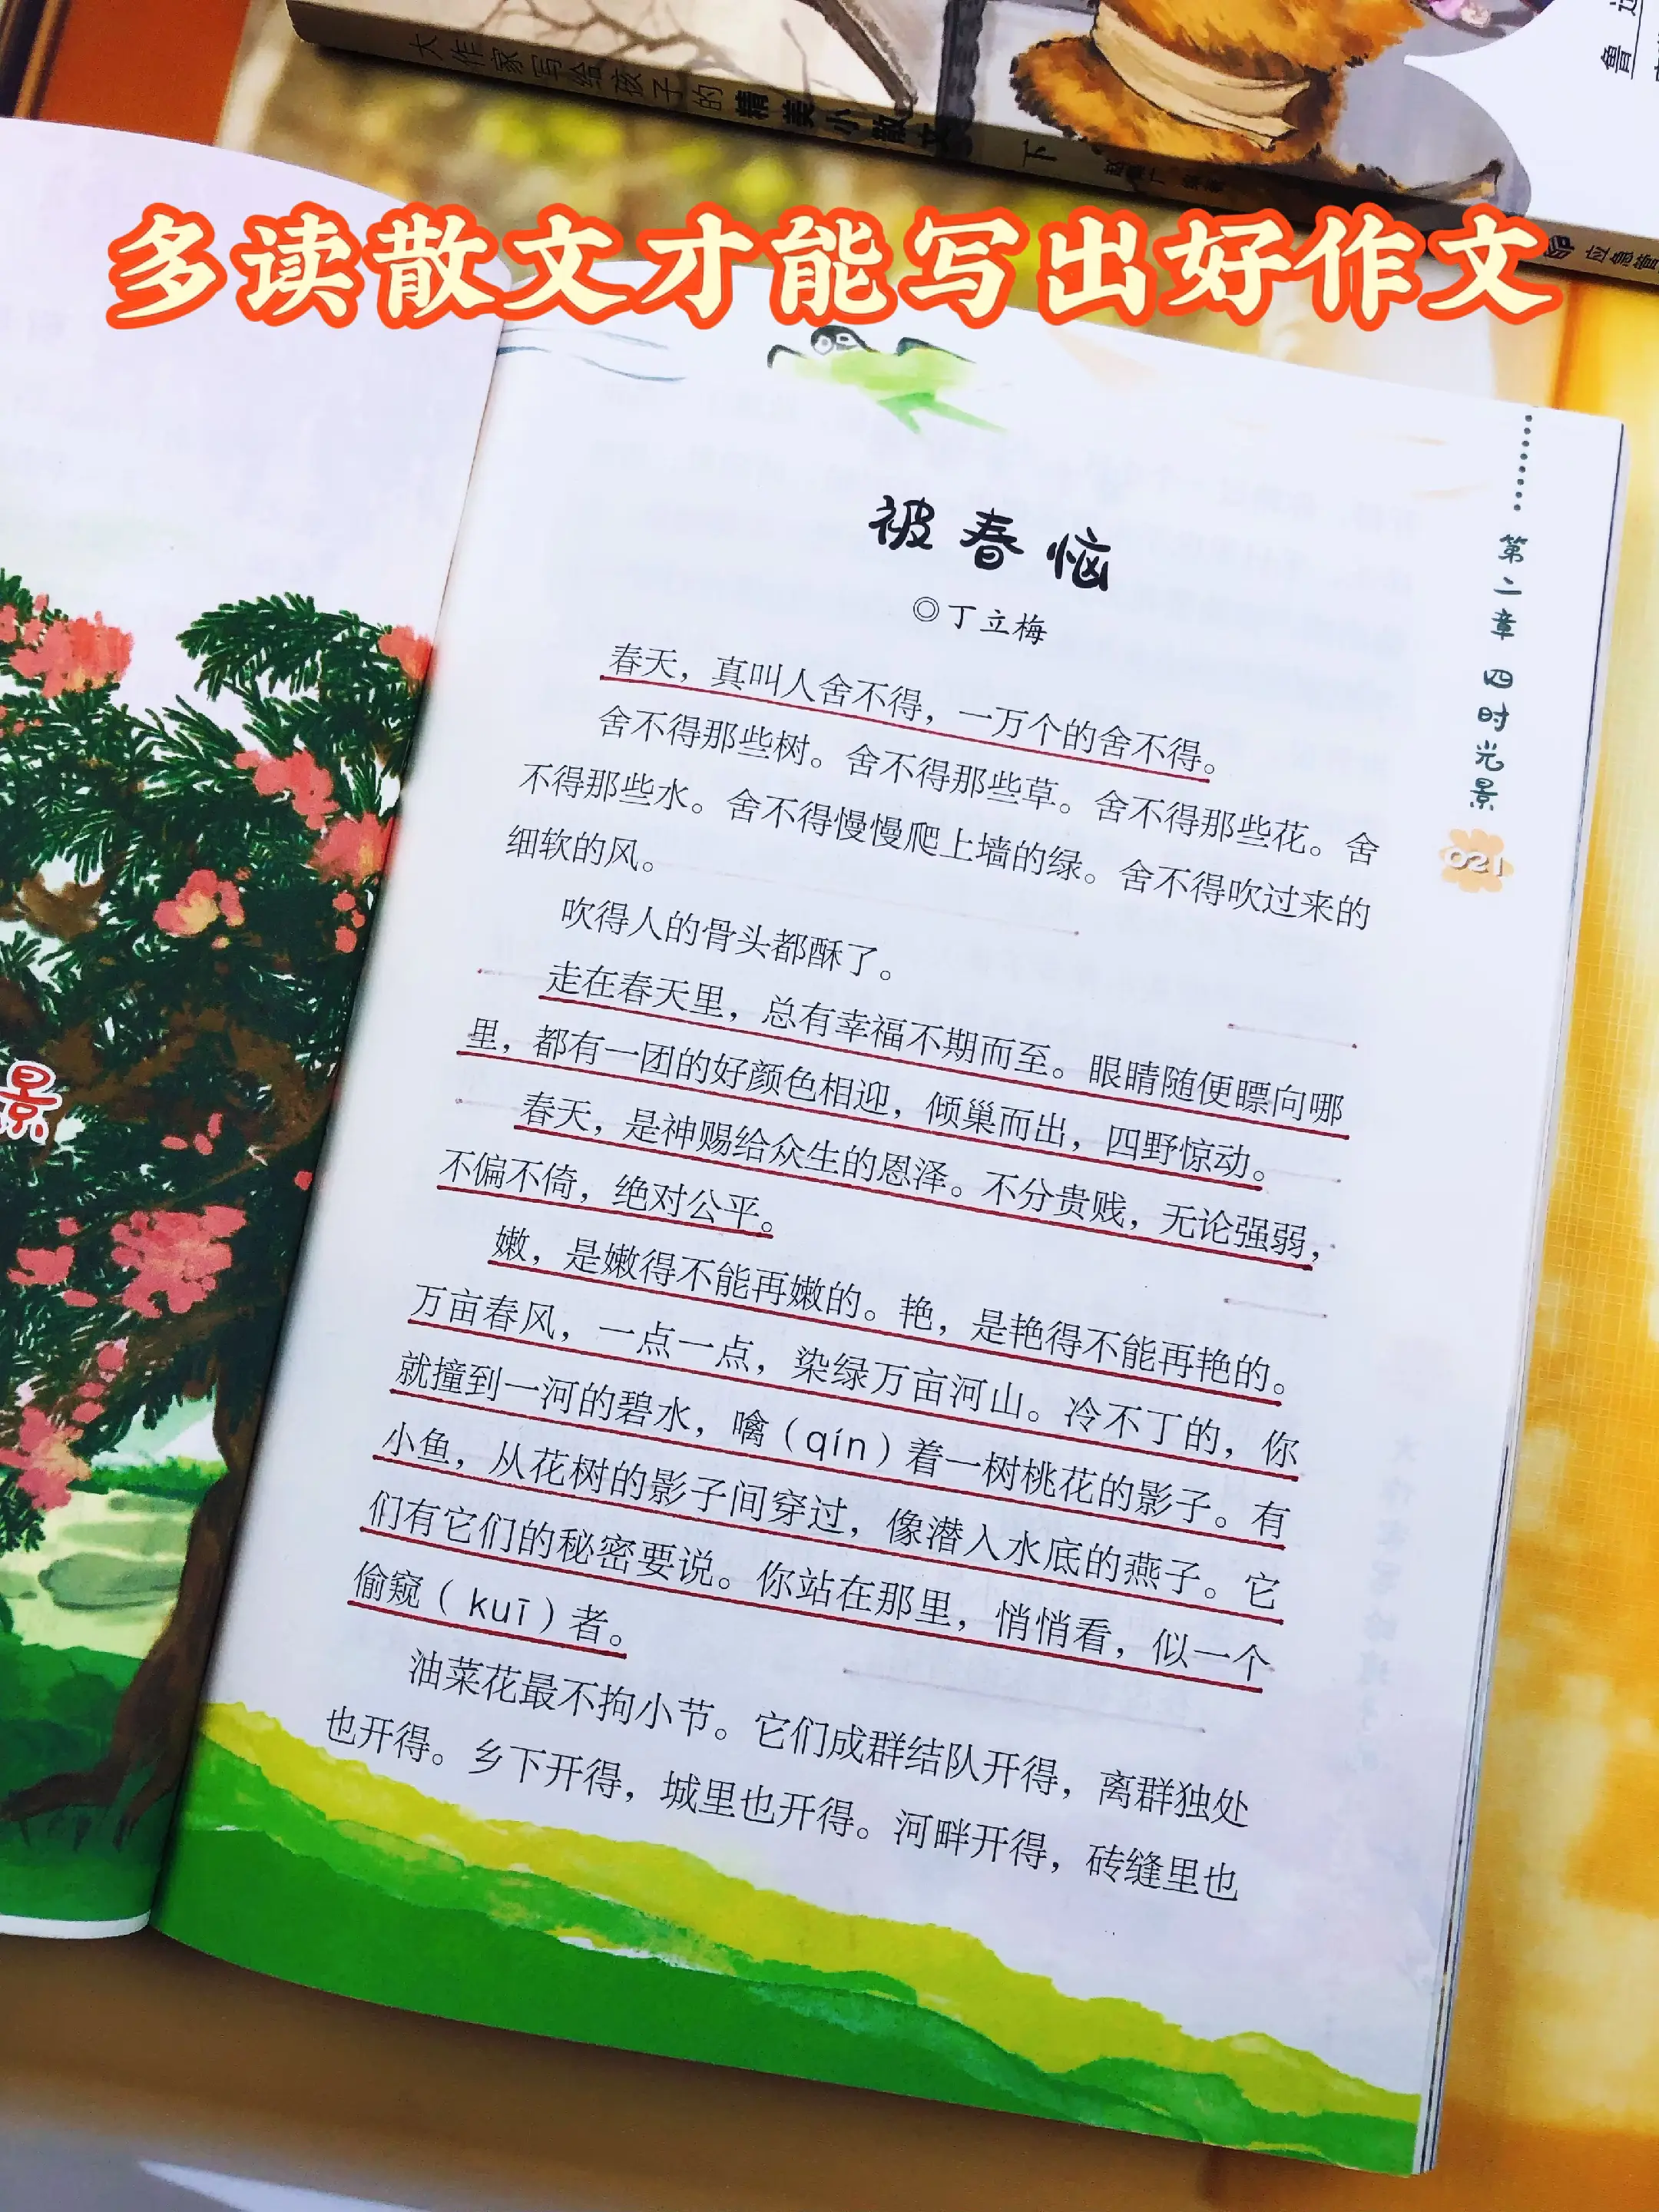 大作家写给孩子的精美小散文
下
应急管
鲁迅
多读散文才能写出好作文
第二章 四时光景
021
景
被春恼
◎丁立梅
春天，真叫人舍不得，一万个的舍不得。
舍不得那些树。舍不得那些草。舍不得那些花。舍
不得那些水。舍不得慢慢爬上墙的绿。舍不得吹过来的
细软的风。
吹得人的骨头都酥了。
走在春天里，总有幸福不期而至。眼睛随便瞟向哪
里，都有一团的好颜色相迎，倾巢而出，四野惊动。
春天，是神赐给众生的恩泽。不分贵贱，无论强弱，
不偏不倚，绝对公平。
嫩，是嫩得不能再嫩的。艳，是艳得不能再艳的。
万亩春风，一点一点，染绿万亩河山。冷不丁的，你
就撞到一河的碧水，噙（qín）着一树桃花的影子。有
小鱼，从花树的影子间穿过，像潜入水底的燕子。它
们有它们的秘密要说。你站在那里，悄悄看，似一个
偷窥（kuī）者。
油菜花最不拘小节。它们成群结队开得，离群独处
也开得。乡下开得，城里也开得。河畔开得，砖缝里也